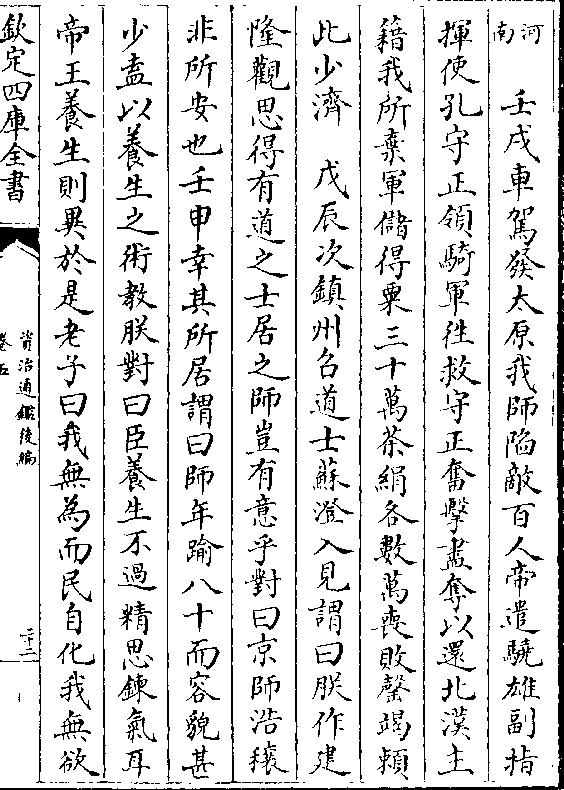 河南
壬戌車駕發太原我師陷敵百人帝遣驍雄副指
揮使孔守正領騎軍往救守正奮擊盡奪以還北漢主
籍我所棄軍儲得粟三十萬茶絹各數萬喪敗罄竭頼
此少濟　戊辰次鎮州召道士蘇澄入見謂曰朕作建
隆觀思得有道之士居之師豈有意乎對曰京師浩穰
非所安也壬申幸其所居謂曰師年踰八十而容貌甚
少盍以養生之術教朕對曰臣養生不過精思鍊氣耳
帝王養生則異於是老子曰我無為而民自化我無欲
欽定四庫全書
資治通鑑後編
卷五
三十二